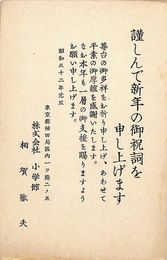 謹しんで新年の御祝詞を
申し上げます
尊台の御多祥をお祈り申し上げ、あわせて
平素の御厚誼を感謝いたします。
なお本年も一層の御支援を賜りますよう
お願い申し上げます。
昭和三十二年元旦
東京都神田局区内一ツ橋二ノ五
株式会社 小学館
相賀徹夫